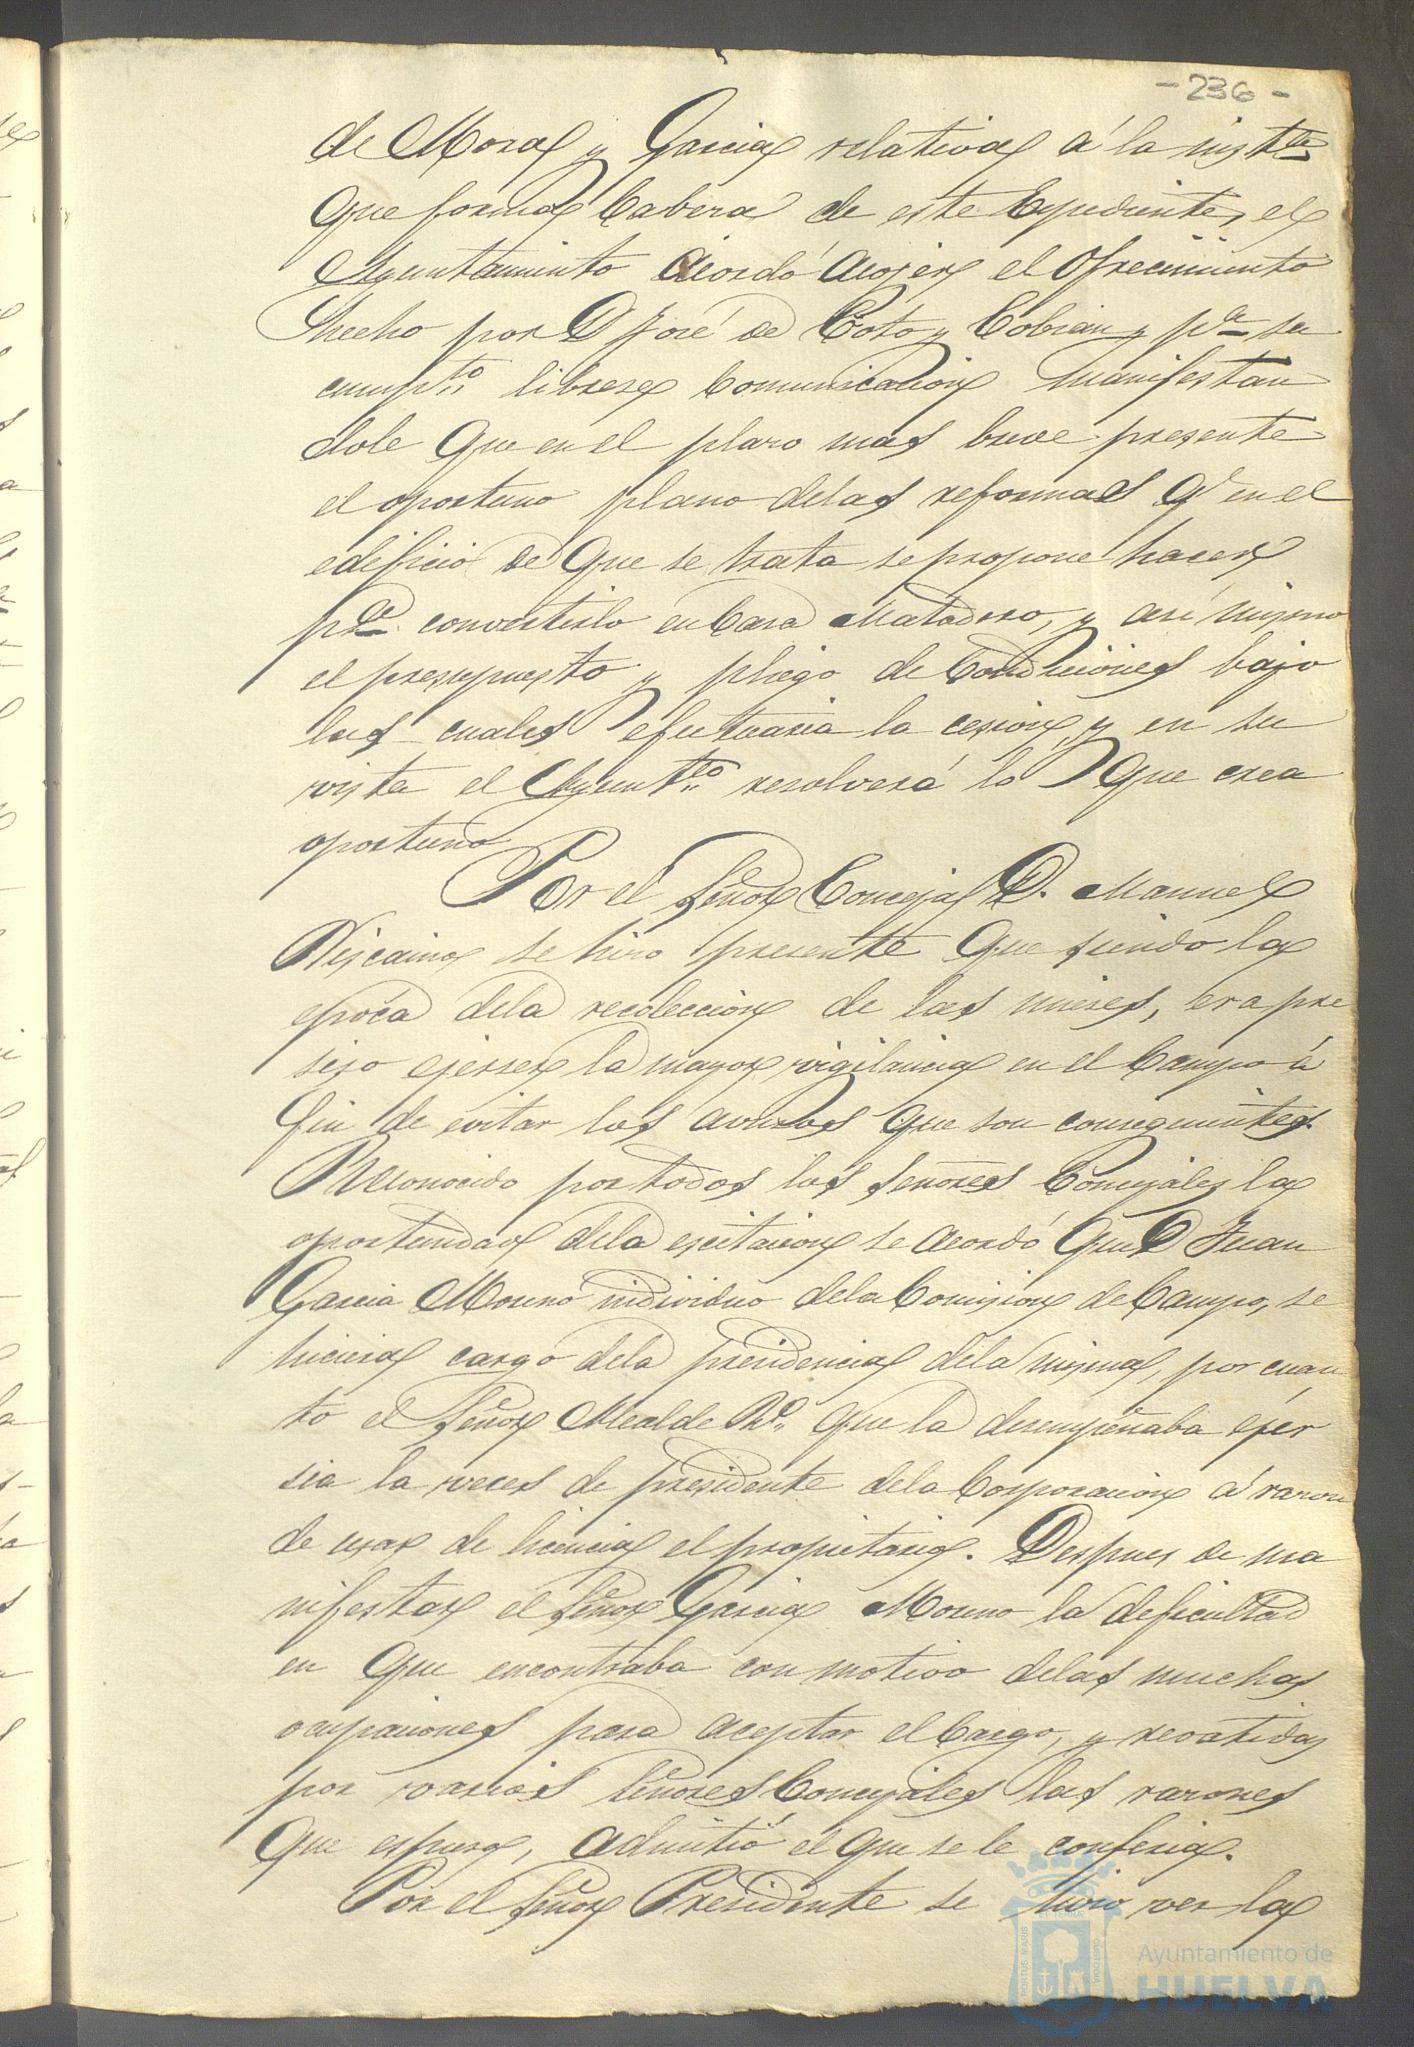 - 236 -
de Mora y Garcia relativa á la inst.cia
que forma Cabeza de este Expediente, el
Ayuntamiento acordó acojer el Ofrecimiento
hecho por D José de Coto y Cobian y p.a su
cump.to librese Comunicacion manifestan
dole que en el plazo mas breve presente
el oportuno plano delas reformas q.e en el
edificio de que se trata se propone hacer
p.a convertirlo en Casa Matadero, y asi mismo
el presupuesto y pliego de Condiciones bajo
las cuales efectuaria la cesion y en su
vista el Ayunt.to resolverá lo que crea
oportuno
Por el Señor Concejal D. Manuel
Viscaino se hizo presente que siendo la
epoca dela recoleccion de las mieses, era pre
siso ejerser la mayor vigilancia en el Campo á
fin de evitar los avusos que son consiguientes.
Reconocido por todos los señores Concejales la
oportunidad dela escitacion se acordó que D Juan
Garcia Moreno individuo dela Comision de Campo, se
hiciera cargo dela presidencia dela misma, por cuan
to el Señor Alcalde 2.o que la desempeñaba ejer
sia la veces de presidente dela Corporacion á razon
de usar de licencia el propietario. Despues de ma
nifestar el Señor Garcia Moreno la deficultad
en que encontraba con motivo delas muchas
ocupaciones para aceptar el Cargo, y revatidas
por varios señores Concejales las razones
que espuso, admitió el que se le conferia.
Por el Señor Presidente se hizo ver la
PORTUS MARIS
CUSTODIA
Ayuntamiento de
HUELVA